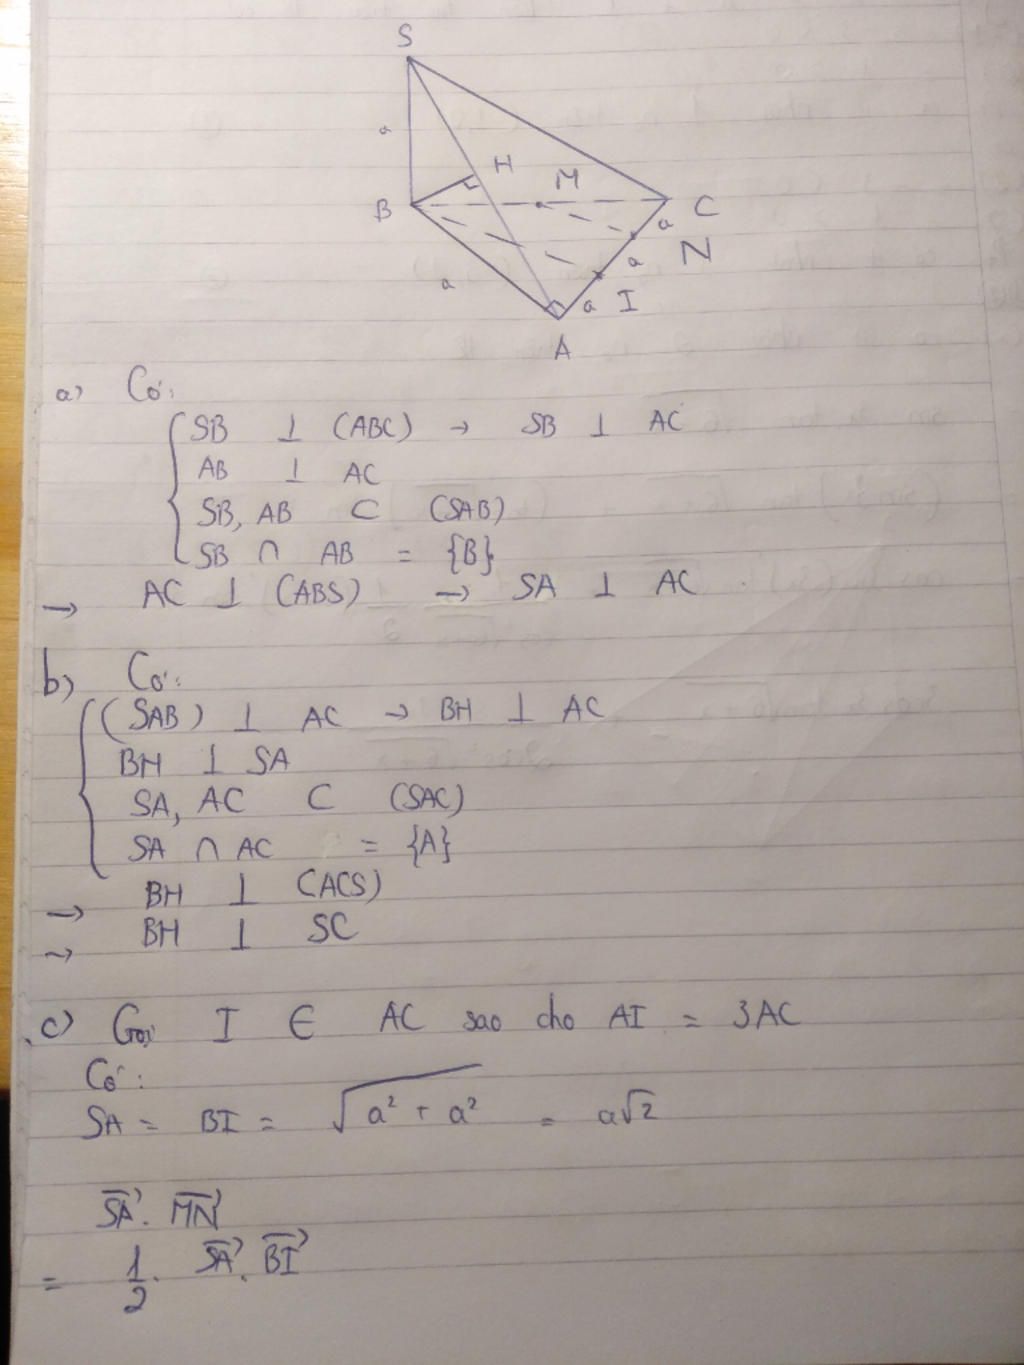 S
a
H
M
B
C
a
N
a
a
a
I
A
a) Có:
SB ⊥ (ABC) → SB ⊥ AC
AB ⊥ AC
SB, AB ⊂ (SAB)
SB ∩ AB = {B}
→ AC ⊥ (ABS) → SA ⊥ AC
b) Có:
(SAB) ⊥ AC → BH ⊥ AC
BH ⊥ SA
SA, AC ⊂ (SAC)
SA ∩ AC = {A}
→ BH ⊥ (ACS)
→ BH ⊥ SC
c) Gọi I ∈ AC sao cho AI = 3AC
Có:
SA = BI = √(a² + a²) = a√2
$\overrightarrow{SA}$ . $\overrightarrow{MN}$
= 1/2 . $\overrightarrow{SA}$ . $\overrightarrow{BI}$